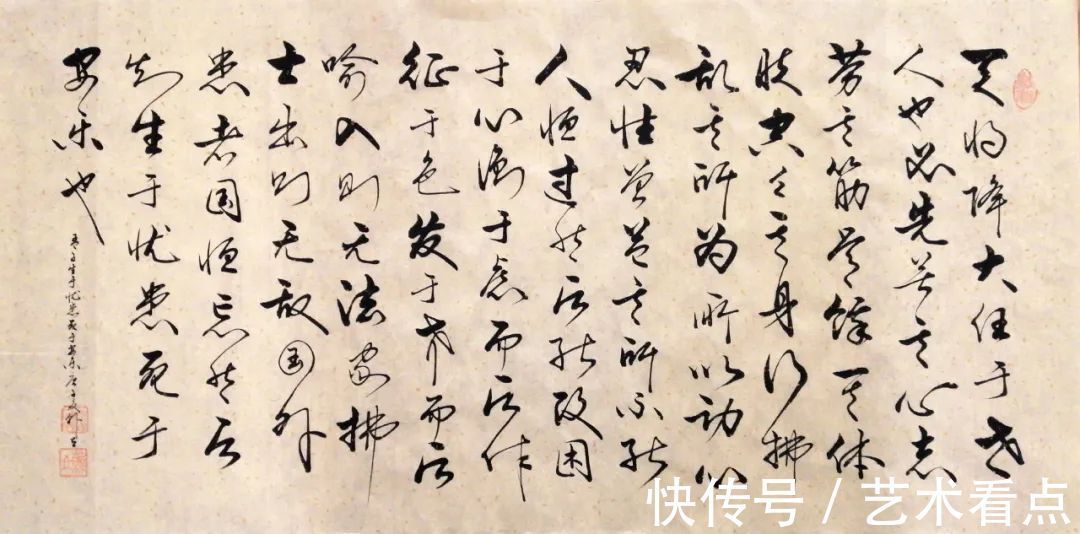 天将降大任于是
人也必先苦其心志
劳其筋骨饿其体
肤空乏其身行拂
乱其所为所以动心
忍性曾益其所不能
人恒过然后能改困
于心衡于虑而后作
征于色发于声而后
喻入则无法家拂
士出则无敌国外
患者国恒亡然后
知生于忧患死于
安乐也
孟子生于忧患死于安乐庚子
快传号 / 艺术看点